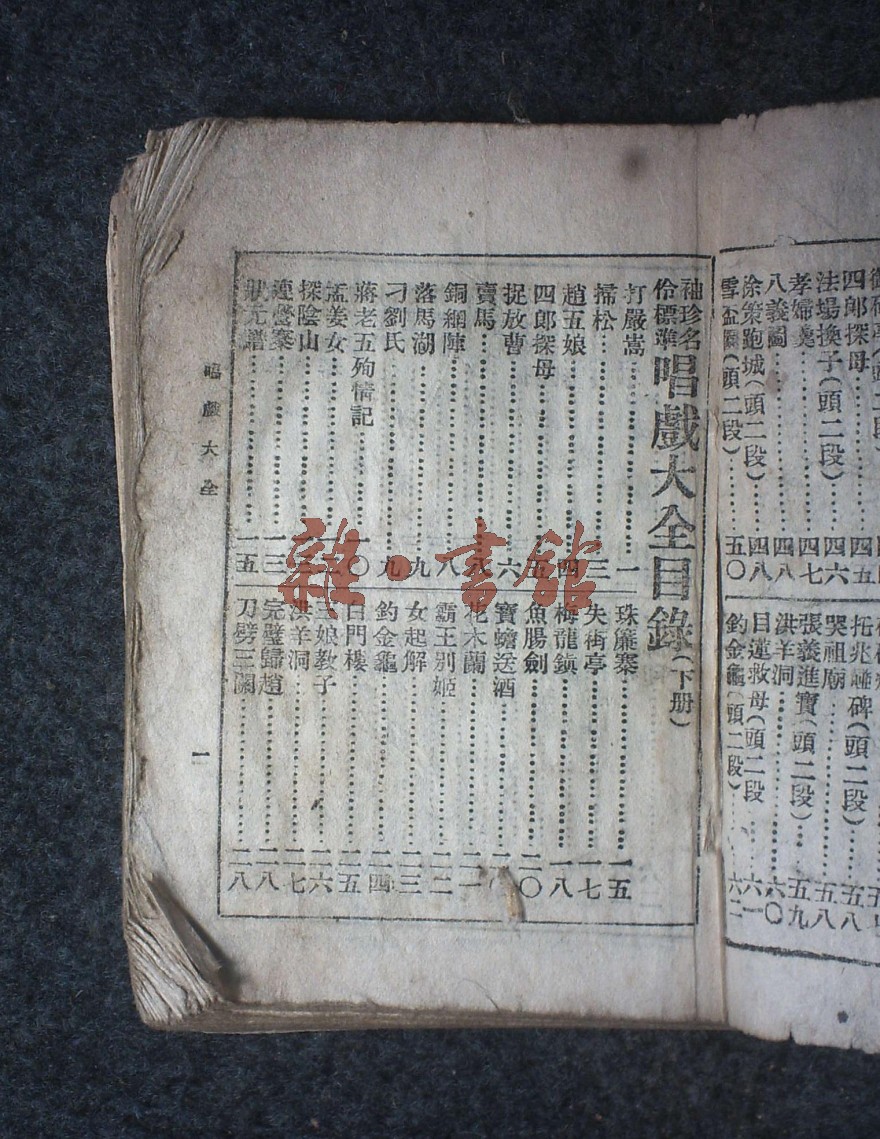 四郎探母……四五
法場換子(頭二段)……四六
孝婦羹……四七
八義圖……四八
徐策跑城(頭二段)……四八
雪盃圓(頭二段)……五〇
托兆碰碑(頭二段)……五八
哭祖廟……五八
張義進寶(頭二段)……五九
洪羊洞……六〇
目蓮救母(頭二段……六一
釣金龜(頭二段)……六二
袖珍名伶標準唱戲大全目錄(下册)
打嚴嵩……一
掃松……三
趙五娘……四
四郎探母……五
捉放曹……六
賣馬……
銅網陣……八
落馬湖……九
刁劉氏……九
蔣老五殉情記……一〇
孟姜女……一二
探陰山……
連營寨……一三
狀元譜……一五
珠簾寨……一五
失街亭……一七
梅龍鎮……一八
魚腸劍……二〇
寶蟾送酒……
花木蘭……二一
霸王別姬……二二
女起解……二三
釣金龜……二四
白門樓……二五
三娘教子……二六
洪羊洞……二七
完璧歸趙……二八
刀劈三關……二八
唱戲大全
一
雜·書館